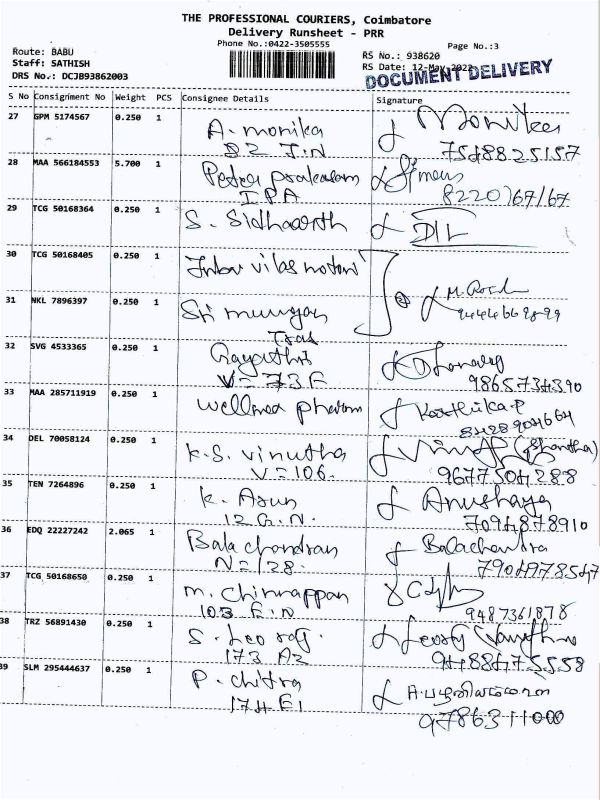 THE PROFESSIONAL COURIERS, Coimbatore
Delivery Runsheet - PRR
Phone No.:0422-3505555
Page No.:3
Route: BABU
RS No.: 938620
Staff: SATHISH
RS Date: 12-May-2022
DRS No.: DCJB93862003
DOCUMENT DELIVERY
S No Consignment No Weight PCS Consignee Details Signature
27 GPM 5174567 0.250 1 A. monika
D2 I.N 7548825157
28 MAA 566184553 5.700 1
IPA
29 TCG 50168364 0.250 1 S. Sidhaarth
30 TCG 50168405 0.250 1
31 NKL 7896397 0.250 1 Sri murugan
32 SVG 4533365 0.250 1 Gayathri
V=73F 9865734390
33 MAA 285711919 0.250 1 wellmed pharam Karthika.P
8428904664
34 DEL 70058124 0.250 1 K.S. vinutha
V=106. 9677504288
35 TEN 7264896 0.250 1 K. Arun Anushaya
12 G.N. 7094878910
36 EDQ 22227242 2.065 1 Bala chandran Balachandra
N=128. 7904978547
37 TCG 50168650 0.250 1 m. chinnappan
103 E.N 9487361878
38 TRZ 56891430 0.250 1 S. Leo raj.
173 A2 9488475558
39 SLM 295444637 0.250 1 P. chitra
174 E1 9786311000